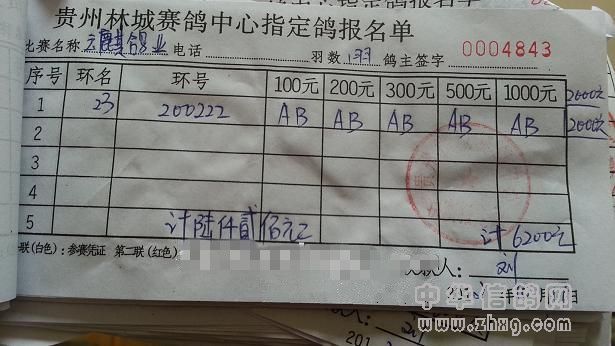 贵州林城赛鸽中心指定鸽报名单
比赛名称 电话 羽数 鸽主签字 0004843
序号 环名 环号 100元 200元 300元 500元 1000元 2000元
1 23 200222 AB AB AB AB AB 2000元
2
3
4
5 计陆仟贰佰元 计6200元
联(白色)：参赛凭证 第二联(红色)
款人：刘
中华信鸽网
www.zhxg.com